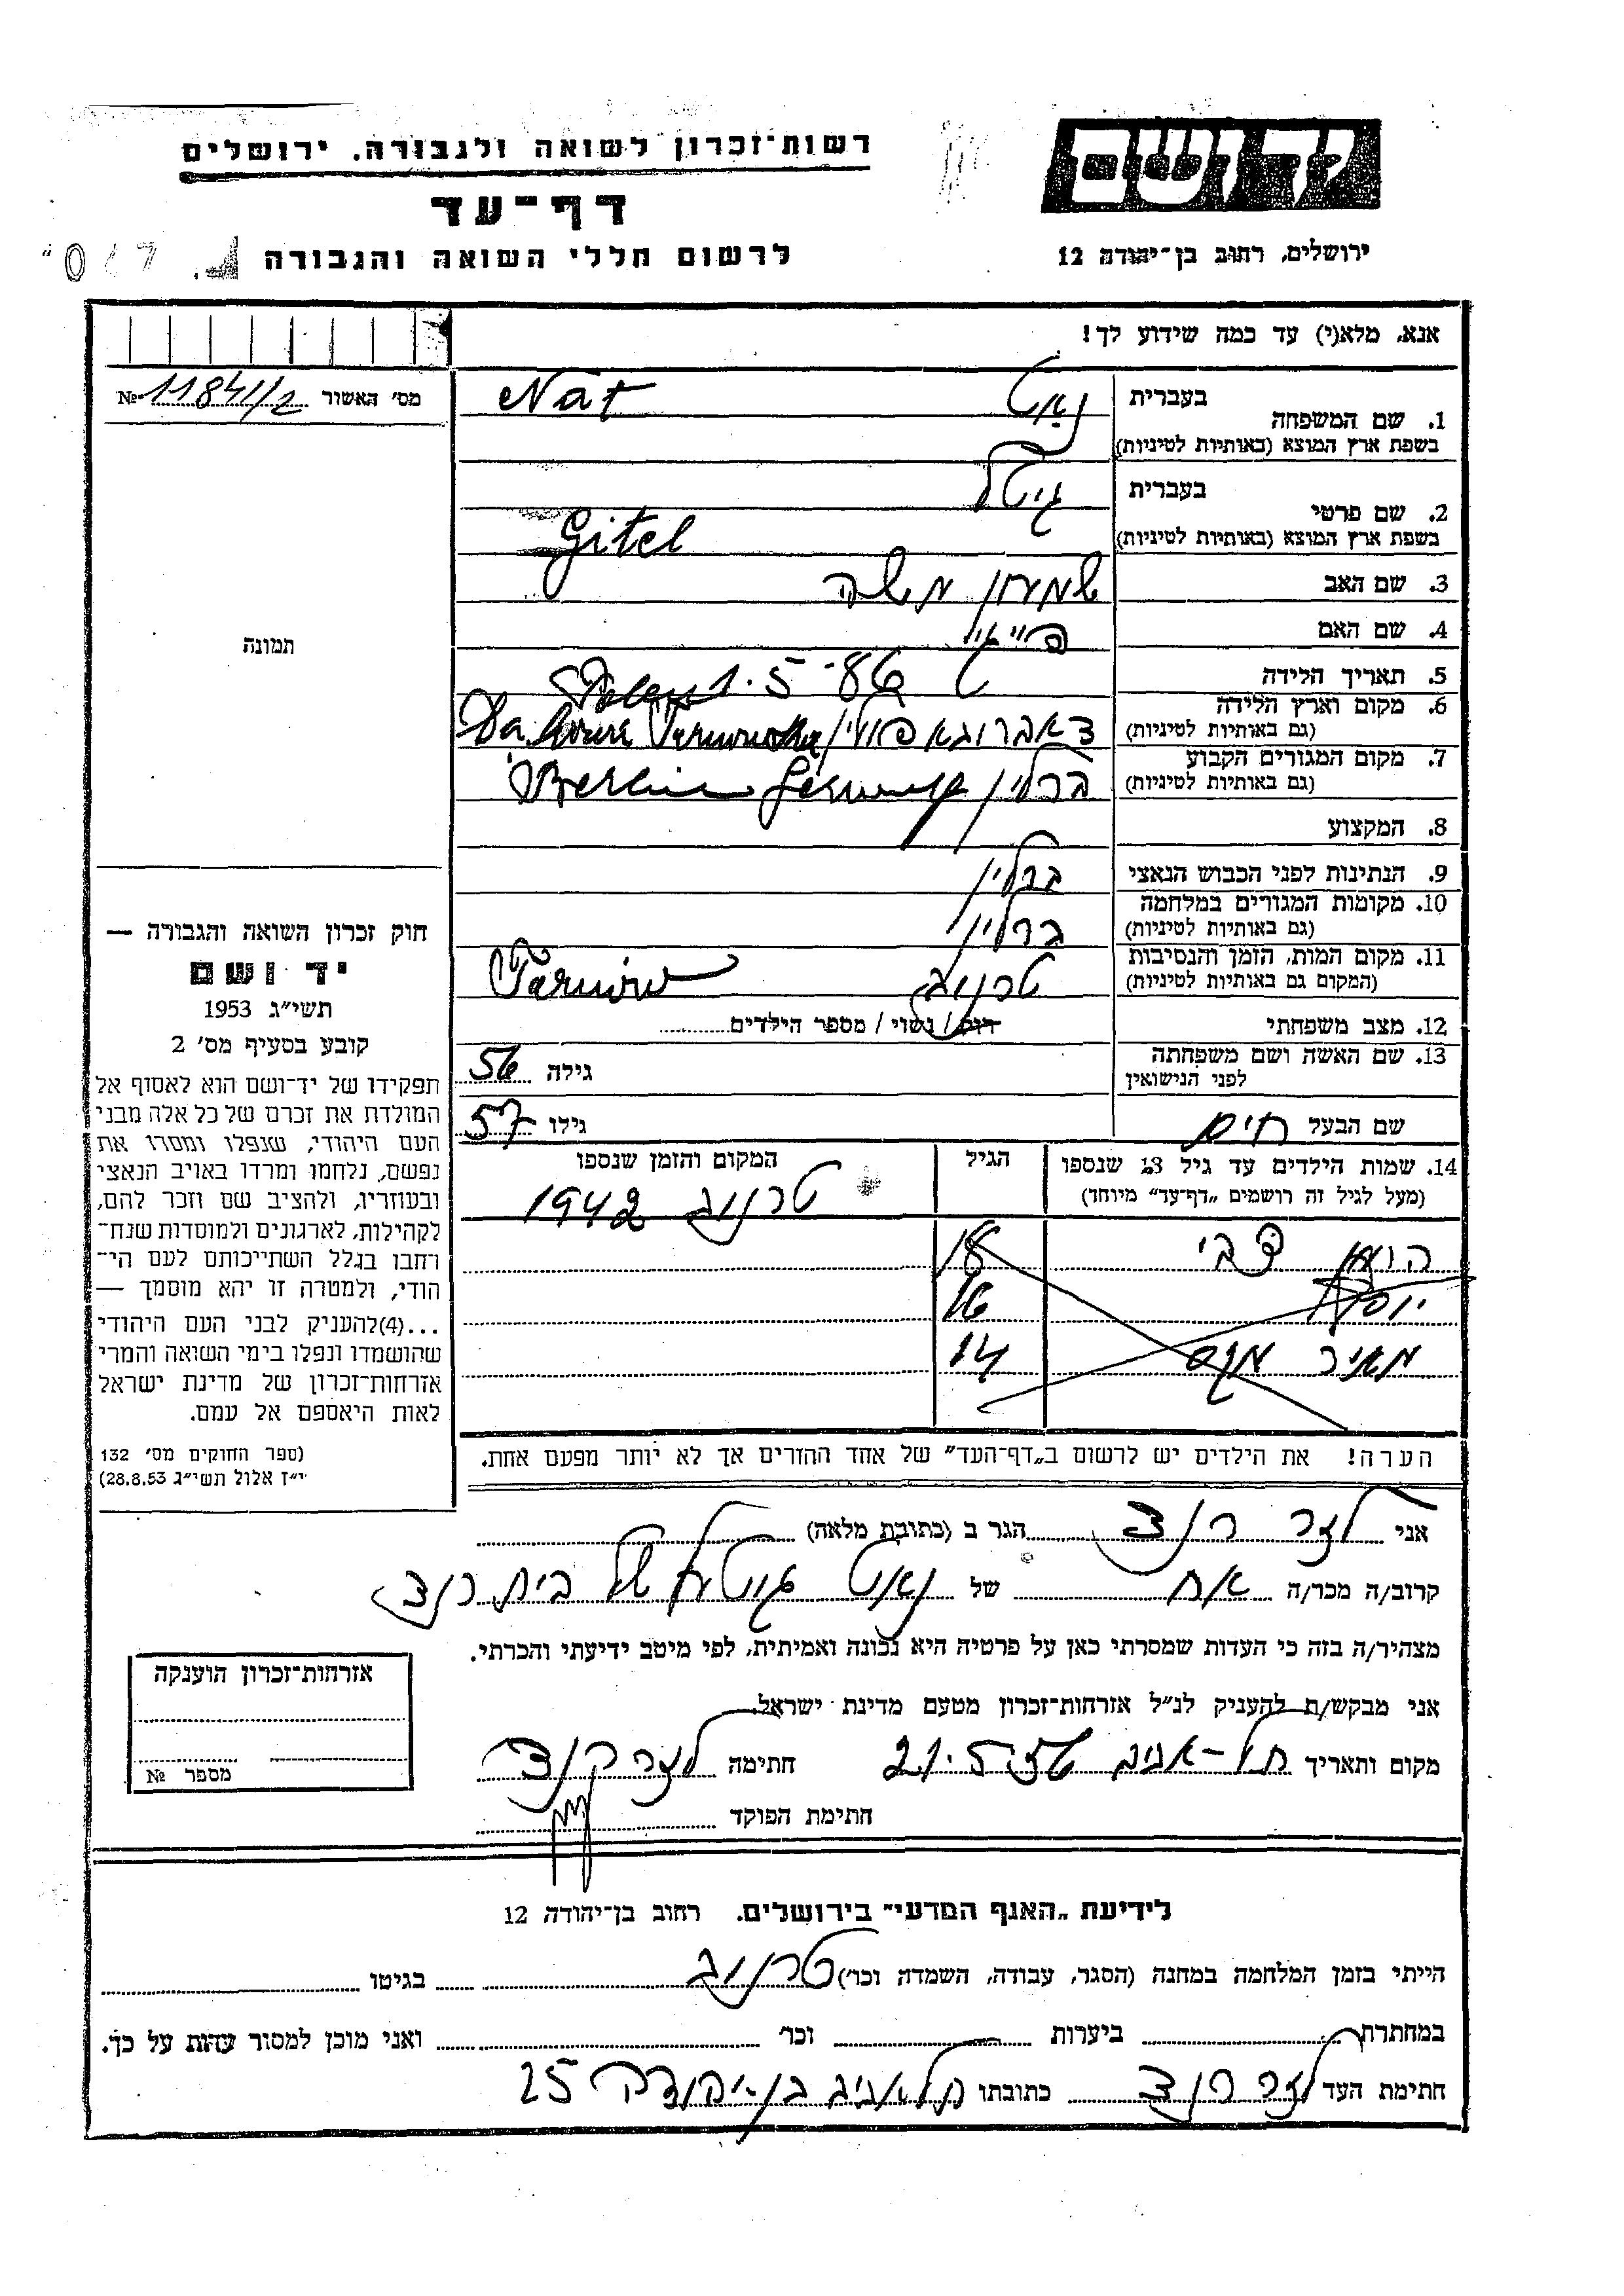 יד ושם
רשות־זכרון לשואה ולגבורה. ירושלים
דף־עד
לרשום חללי השואה והגבורה
ירושלים, רחוב בן־יהודה 12
אנא, מלא(י) עד כמה שידוע לך!
מס' האשור № 11841/2
1. שם המשפחה בעברית נאט
בשפת ארץ המוצא (באותיות לטיניות) Nat
2. שם פרטי בעברית גיטל
בשפת ארץ המוצא (באותיות לטיניות) Gitel
3. שם האב שמעון משה
4. שם האם
5. תאריך הלידה 1.5.86
6. מקום וארץ הלידה
(גם באותיות לטיניות)
7. מקום המגורים הקבוע ברלין Berlin Germany
(גם באותיות לטיניות)
8. המקצוע
9. הנתינות לפני הכבוש הנאצי ברלין
10. מקומות המגורים במלחמה ברלין
(גם באותיות לטיניות)
11. מקום המות, הזמן והנסיבות טרנוב Tarnów
(המקום גם באותיות לטיניות)
12. מצב משפחתי רווק / נשוי / מספר הילדים
13. שם האשה ושם משפחתה
לפני הנישואין
גילה 56
שם הבעל חיים גילו 57
14. שמות הילדים עד גיל 18 שנספו
(מעל לגיל זה רושמים „דף־עד" מיוחד)
הגיל
המקום והזמן שנספו
טרנוב 1942
צבי 18
יוסף 16
מאיר 14
הערה! את הילדים יש לרשום ב„דף־העד" של אחד ההורים אך לא יותר מפעם אחת.
תמונה
חוק זכרון השואה והגבורה —
יד ושם
תשי״ג 1953
קובע בסעיף מס' 2
תפקידו של יד־ושם הוא לאסוף אל
המולדת את זכרם של כל אלה מבני
העם היהודי, שנפלו ומסרו את
נפשם, נלחמו ומרדו באויב הנאצי
ובעוזריו, ולהציב שם וזכר להם,
לקהילות, לארגונים ולמוסדות שנח־
רבו בגלל השתייכותם לעם הי־
הודי, ולמטרה זו יהא מוסמך —
...(4)להעניק לבני העם היהודי
שהושמדו ונפלו בימי השואה והמרי
אזרחות־זכרון של מדינת ישראל
לאות היאספם אל עמם.
(ספר החוקים מס' 132
י״ז אלול תשי״ג 28.8.53)
אני לזר רנד הגר ב (כתובת מלאה)
קרוב/ה מכר/ה אח של נאט גיטל של בית רנד
מצהיר/ה בזה כי העדות שמסרתי כאן על פרטיה היא נכונה ואמיתית, לפי מיטב ידיעתי והכרתי.
אני מבקש/ת להעניק לנ״ל אזרחות־זכרון מטעם מדינת ישראל.
מקום ותאריך תל-אביב 21.5.56 חתימה לזר רנד
חתימת הפוקד
אזרחות־זכרון הוענקה
מספר №
לידיעת „האגף המדעי" בירושלים. רחוב בן־יהודה 12
הייתי בזמן המלחמה במחנה (הסגר, עבודה, השמדה וכו') טרנוב בגיטו
במחתרת ביערות וכו' ואני מוכן למסור עדות על כך.
חתימת העד לזר רנד כתובתו תל אביב בן יהודה 25